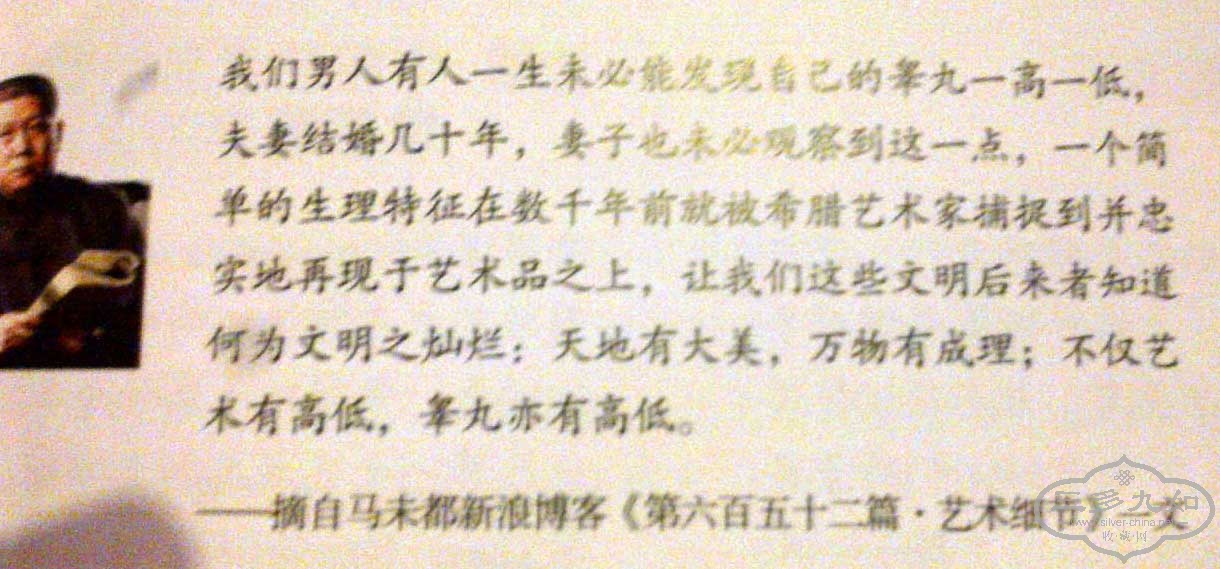 我们男人有人一生未必能发现自己的睾丸一高一低，
夫妻结婚几十年，妻子也未必观察到这一点，一个简
单的生理特征在数千年前就被希腊艺术家捕捉到并忠
实地再现于艺术品之上，让我们这些文明后来者知道
何为文明之灿烂：天地有大美，万物有成理；不仅艺
术有高低，睾丸亦有高低。
——摘自马未都新浪博客《第六百五十二篇·艺术细节》一文
九如
www.silver-china.net
收藏网